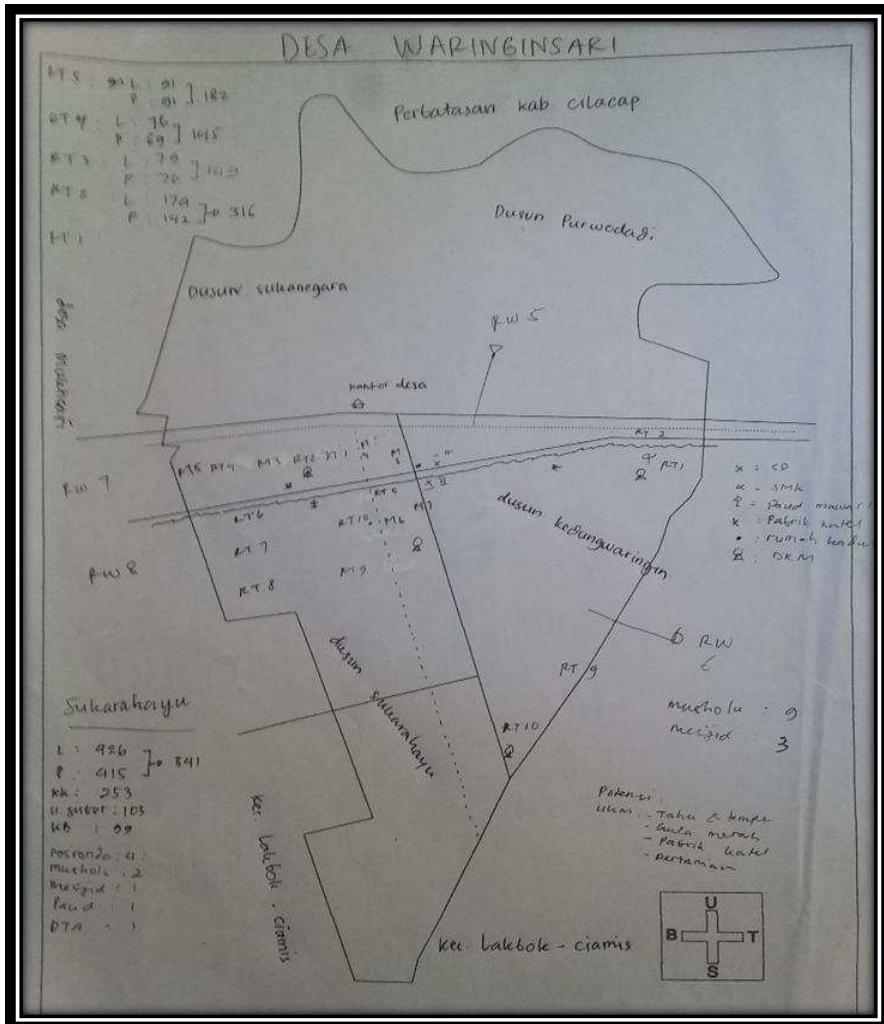 DESA WARINGINSARI
RT 5 : L : 91
P : 91 ] 182
RT 4 : L : 76
P : 69 ] 145
RT 3 : L : 79
P : 70 ] 149
RT 2 : L : 174
P : 142 ] 316
RT 1
Perbatasan kab cilacap
Dusun Purwodadi
Dusun sukanegara
RW 5
desa
kantor desa
RT 2
RW 7
RT5 RT4 RT3 RT2 RT1
RT1
RT 5
RT 6
RT10
RT 7
RW 8
RT 8
RT 9
dusun kedungwaringin
x = SD
∝ = SMK
= Paud mawar
x = Pabrik katel
• : rumah kadus
: DKM
RW
6
RT 9
dusun sukarahayu
RT10
musholu : 9
mesjid : 3
Sukarahayu
L : 426
P : 415 ] 841
KK : 253
U. subur : 103
KB : 99
Posronda : 4
Mushola : 2
Mesjid : 1
Paud : 1
DTA : 1
kec. Lakbok - ciamis
Potensi :
UKM : - Tahu & tempe
- Gula merah
- Pabrik katel
- Pertanian
kec. Lakbok - ciamis
U
B T
S